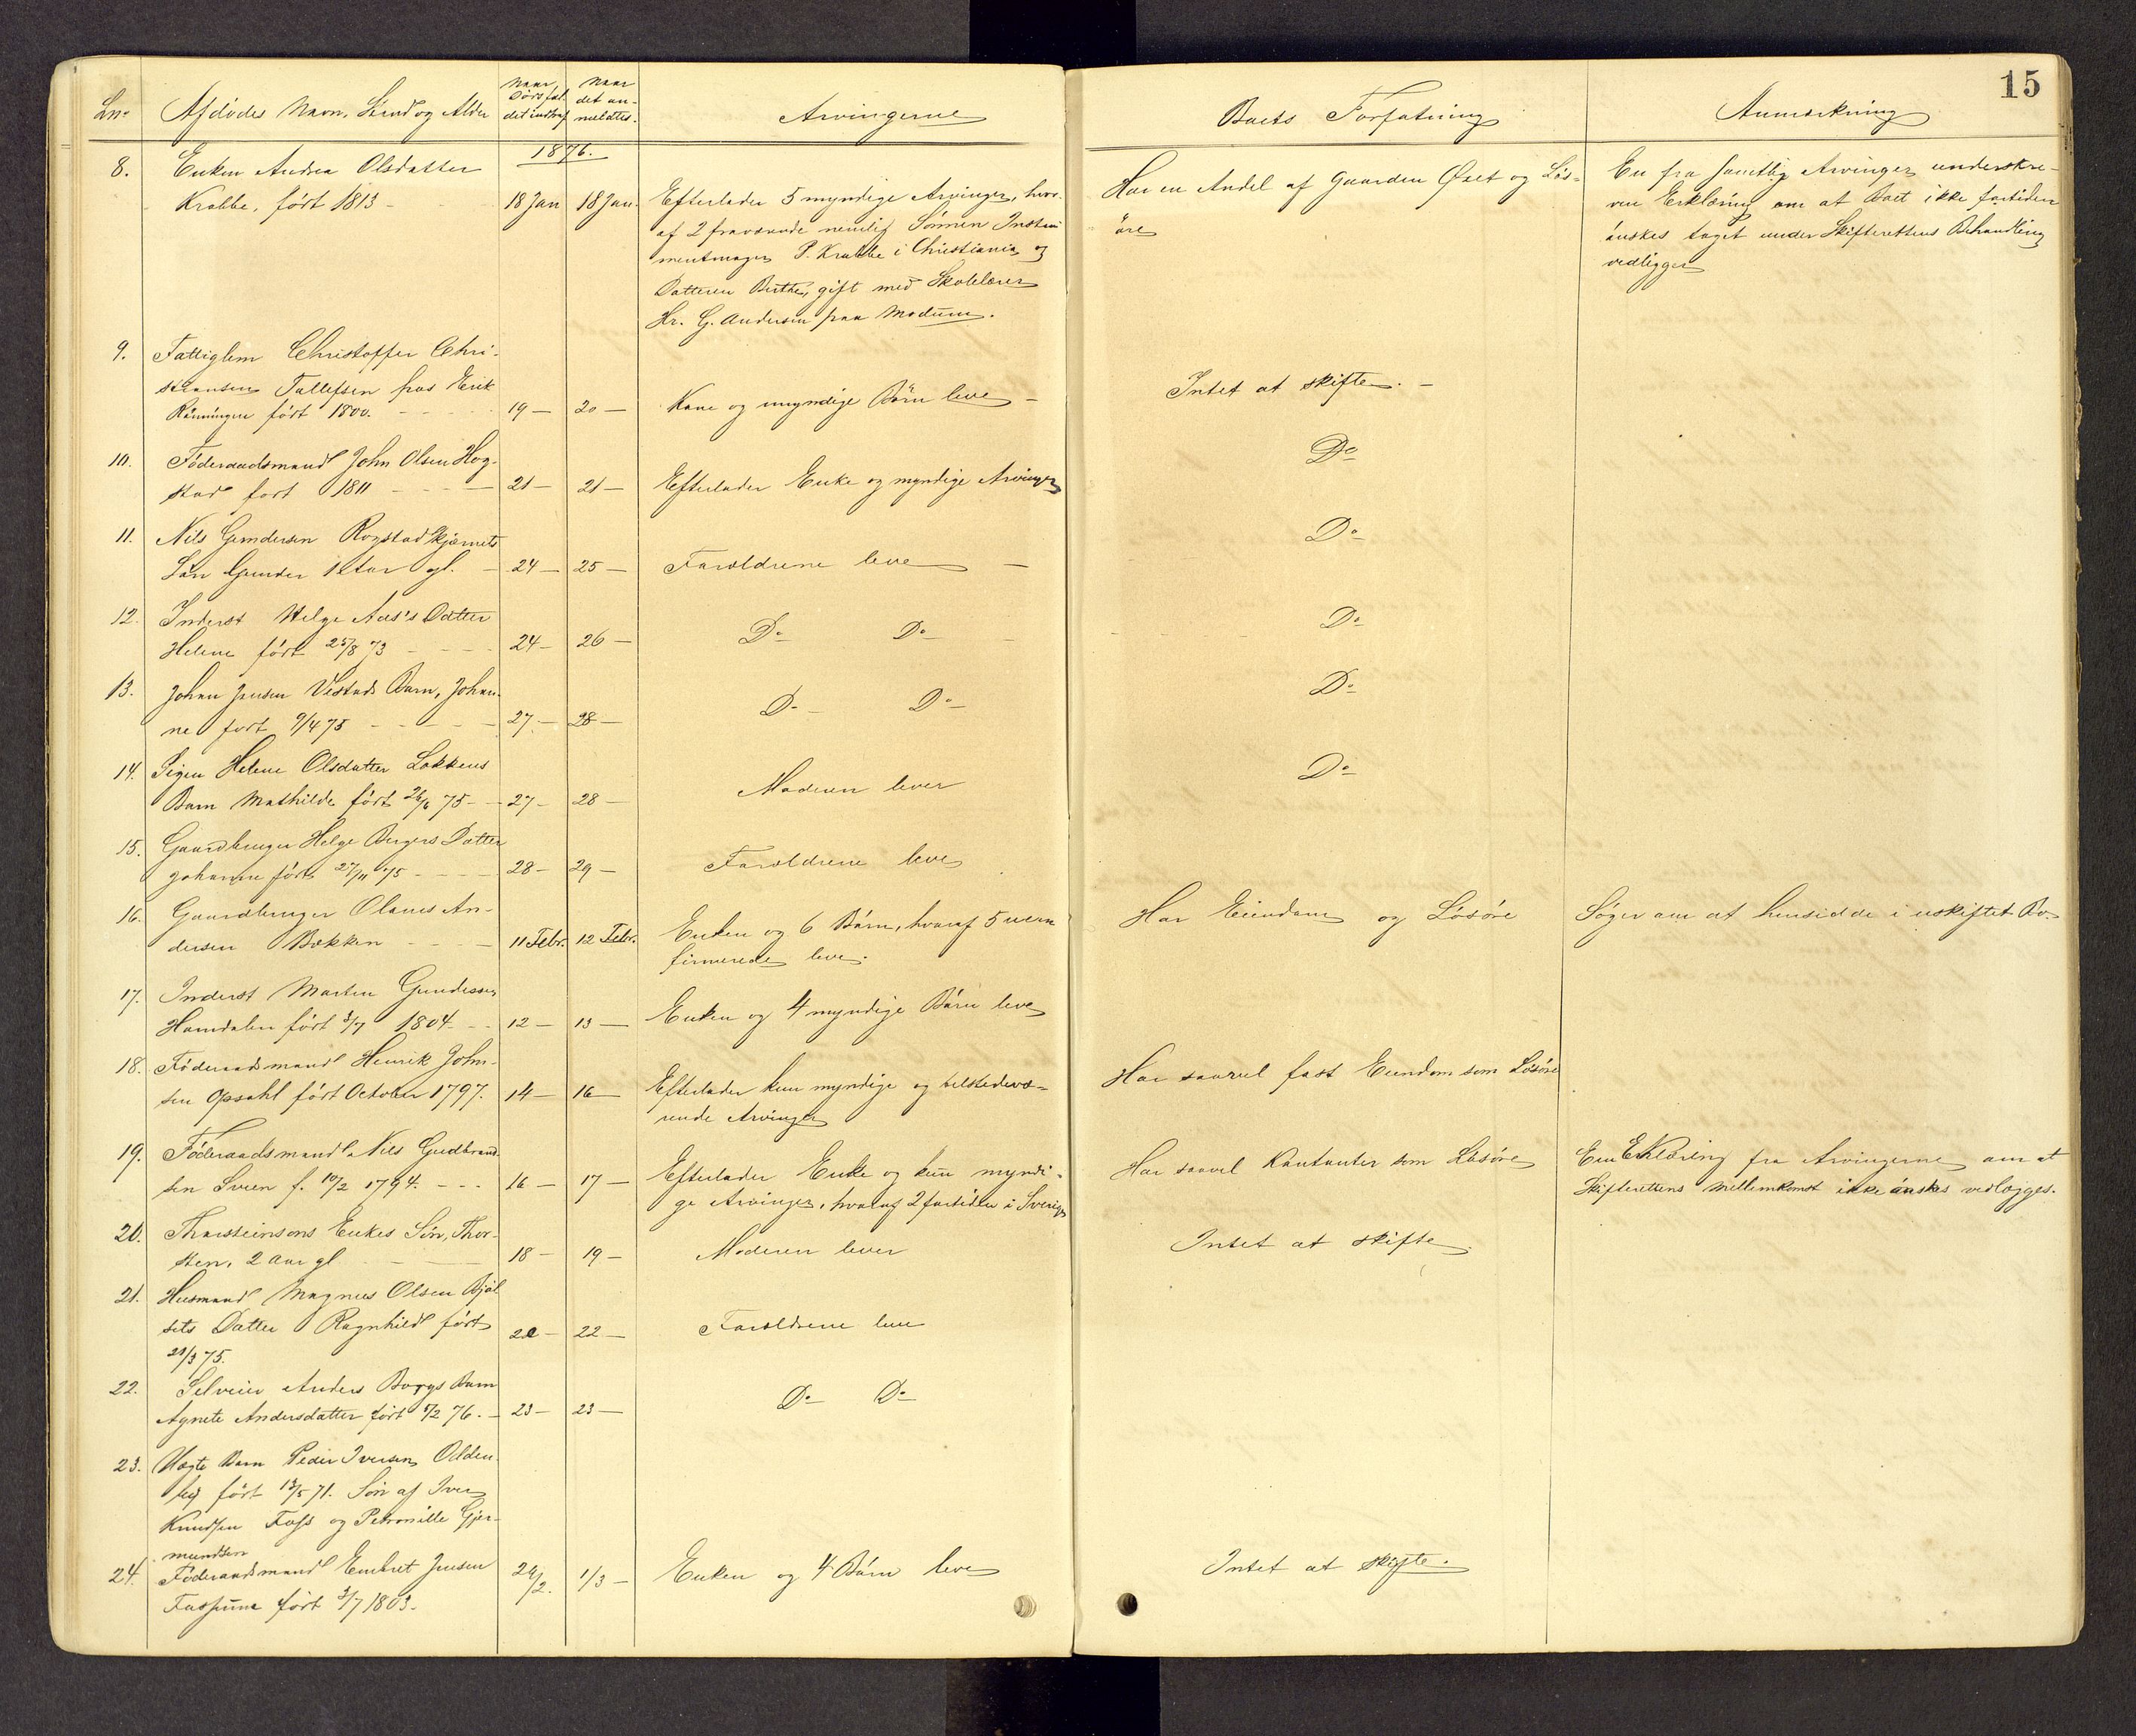 15
Lnr Afdødes Navn, Stand og Alder Naar Dødsfal- det indtraf Naar det an- meldtes. Arvingerne Boets Forfatning Anmærkning
1876.
8. Enken Andrea Olsdatter
Krabbe, født 1813 - 18 Jan 18 Jan. Efterlader 5 myndige Arvinger, hvor-
af 2 fraværende nemlig Sønnen Instru
mentmager P. Krabbe i Christiania og
Datteren Berthe, gift med Skolelærer
Hr. G. Andersen paa Modum.
Har en Andel af Gaarden Øset og Løs-
øre
En fra samtlig Arvinger underskre-
ven Erklæring om at Boet ikke fortiden
ønskes taget under Skifterettens Behandling
vedligger
9. Fattiglem Christoffer Chri-
stiansen Tollefsen hos Erik
Rønningen født 1800. - 19 - 20 - Kone og myndige Børn leve - Intet at skifte. -
10. Føderaadsmand John Olsen Hog-
stad født 1811 - 21 - 21 - Efterlader Enke og myndige Arvinger Do
11. Nils Gundersen Rogstadkjærnets
Søn Gunder 12 Aar gl. - 24 - 25 - Forældrene leve - Do
12. Inderst Helge Aas's Datter
Helene født 25/8 73 - 24 - 26 - Do Do - Do
13. Johan Jensen Vestads Barn, Johan-
ne født 9/4 75 - 27 - 28 - Do Do Do
14. Pigen Helene Olsdatter Løkkens
Barn Mathilde født 26/6 75 - 27 - 28 - Moderen lever Do
15. Gaardbruger Helge Bergers Datter
Johanne født 27/11 75 - 28 - 29 - Forældrene leve
16. Gaardbruger Olaves An-
dersen Bakken - 11 Febr. 12 Febr. Enken og 6 Børn, hvoraf 5 ucon
firmerede leve.
Har Eiendom og Løsøre
Søger om at hensidde i uskiftet Bo
17. Inderst Martin Gundersen
Hamdalen født 3/7 1804 - 12 - 13 - Enken og 4 myndige Børn leve
18. Føderaadsmand Henrik John-
sen Opsahl født October 1797. 14 - 16 - Efterlader kun myndige og tilstedevæ-
rende Arvinger
Har saavel fast Eiendom som Løsøre
19. Føderaadsmand Nils Gudbrand-
sen Sveen f. 10/2 1794. - 16 - 17 - Efterlader Enke og kun myndi-
ge Arvinger, hvoraf 2 fortiden i Sverige
Har saavel Kontanter som Løsøre
Em Erklæring fra Arvingerne om at
Skifterettens Mellemkomst ikke ønskes vedlægges.
20. Thorsteinsons Enkes Søn, Thor-
sten, 2 Aar gl - 18 - 19 - Moderen lever Intet at skifte
21. Husmand Magnus Olsen Bjøl
sets Datter Ragnhild født 20 - 22 - Forældrene leve
21/3 75.
22. Selveier Anders Borgs Barn
Agnete Andersdatter født 1/2 76. - 23 - 23 - Do Do
23. Uægte Barn Peder Iversen Olden-
født 13/5 71. Søn af Iver
Knudsen Foss og Petronille Gjer-
mundsen
24. Føderaadsmand Embret Jensen 29/2. 1/3 - Enken og 4 Børn leve Intet at skifte.
født 3/7 1803.